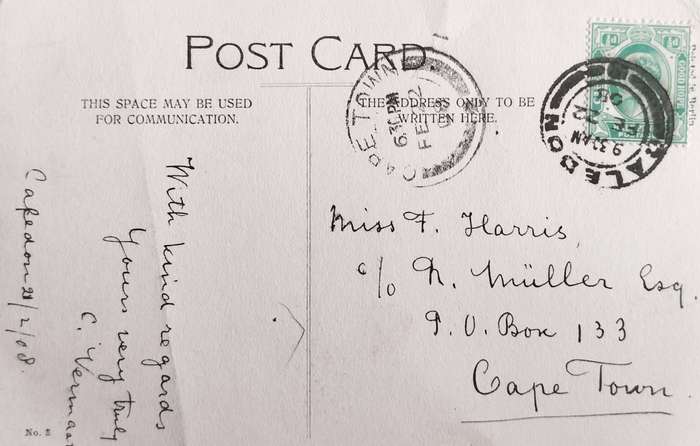 POST CARD
THIS SPACE MAY BE USED
FOR COMMUNICATION.
THE ADDRESS ONLY TO BE
WRITTEN HERE.
CAPE TOWN
6.30PM
FE 22
08
CALEDON
9.30AM
FE 22
08
With kind regards
Yours very truly
C.
Caledon 21/2/08.
Miss F. Harris,
c/o N. Müller Esq
P.O. Box 133
Cape Town.
No. 2